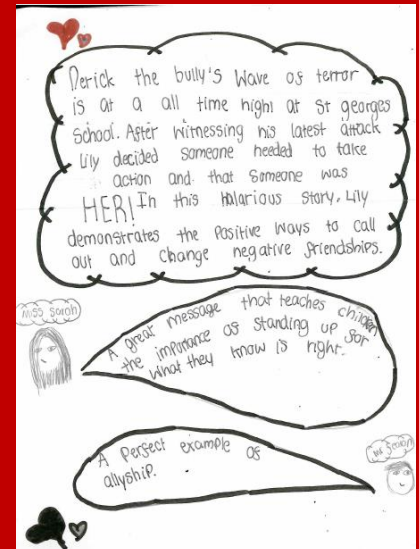 Derick the bully's wave of terror
is at a all time high at St georges
School. After witnessing his latest attack
Lily decided someone needed to take
action and that someone was
HER! In this halarious story, Lily
demonstrates the Positive ways to call
out and change negative friendships.
Miss Sarah
A great message that teaches children
the imporance of standing up for
what they know is right.
A Perfect example of
allyship.